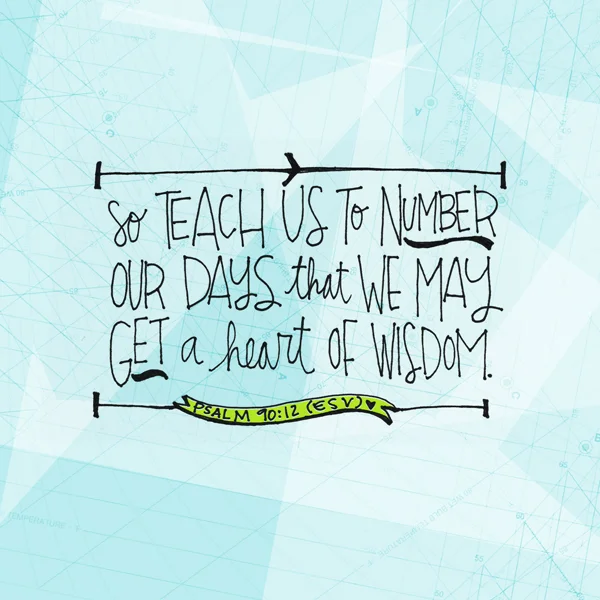 So TEACH US To NUMBER
OUR DAYS that WE MAY
GET a heart OF WISDOM.
PSALM 90:12 (ESV)
TEMPERATURE